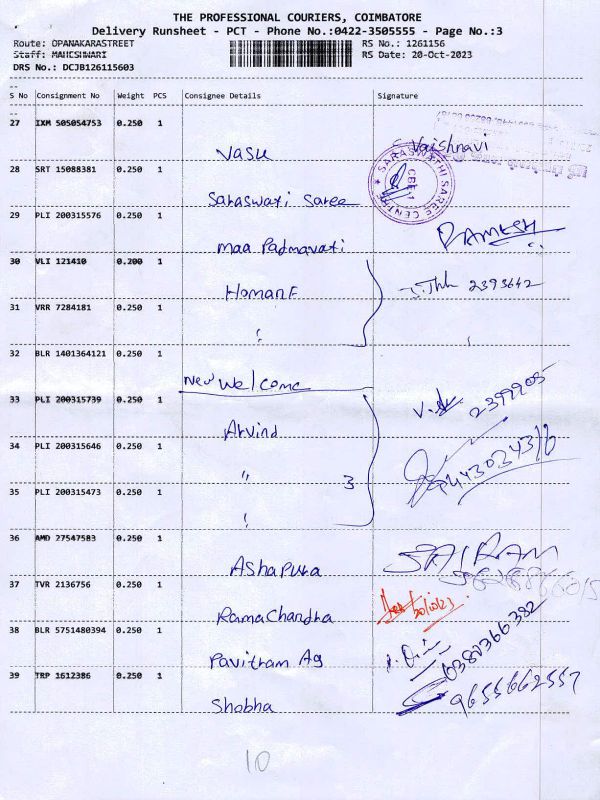 THE PROFESSIONAL COURIERS, COIMBATORE
Delivery Runsheet - PCT - Phone No.:0422-3505555 - Page No.:3
Route: OPANAKARASTREET RS No.: 1261156
Staff: MAHESHWARI RS Date: 20-Oct-2023
DRS No.: DCJB126115603
S No Consignment No Weight PCS Consignee Details Signature
27 IXM 505054753 0.250 1
Vasu Vaishnavi
28 SRT 15088381 0.250 1
Saraswati Saree SARASWATHI SAREE CENTRE CBE-1
29 PLI 200315576 0.250 1
Maa Padmavati RAMESH
30 VLI 121410 0.200 1
Homan F 2393642
31 VRR 7284181 0.250 1
"
32 BLR 1401364121 0.250 1
New Welcome
33 PLI 200315739 0.250 1
Arvind 2399905
34 PLI 200315646 0.250 1
" 3
35 PLI 200315473 0.250 1
"
36 AMD 27547583 0.250 1
Ashapura SAI RAM
37 TVR 2136756 0.250 1
RamaChandra
38 BLR 5751480394 0.250 1
Pavitram Ag
39 TRP 1612386 0.250 1
Shobha 9655662557
10